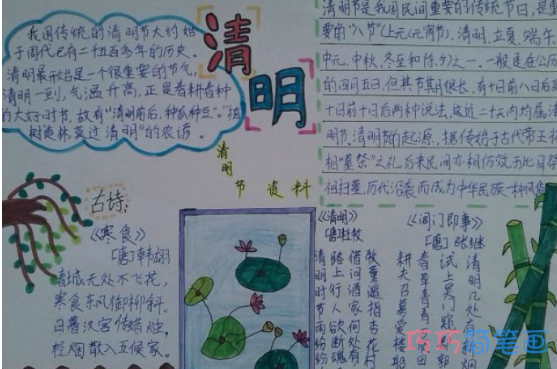 我国传统的清明节大约始
于周代已有二千五百多年的历史。
清明最开始是一个很重要的节气，
清明一到，气温升高，正是春耕春种
的大好时节，故有“清明前后，种瓜种豆”。“植
树造林莫过清明”的农谚。
清明
清明节资料
清明节是我国民间重要的传统节日，是重
要的“八节”（上元（元宵），清明、立夏、端午、
中元、中秋、冬至和除夕）之一。一般是在公历
的四月五日，但其节期很长，有十日前八日后及
十日前十日后两种说法，这近二十天内均属清
明节。清明节的起源，据传始于古代帝王
相“墓祭”之礼，后来民间亦相仿效，于此日祭
祖扫墓，历代沿袭而成为中华民族一种风俗
古诗:
《寒食》
[唐]韩翃
春城无处不飞花，
寒食东风御柳斜。
日暮汉宫传蜡烛，
轻烟散入五侯家。
《清明》
[唐]杜牧
清明时节雨纷
路上行人欲断魂
借问酒家何处有
牧童遥指杏花村
《闾门即事》
[唐]张继
耕夫召募爱楼船
春草青青万
试上吴门
清明几处
巧巧简笔画